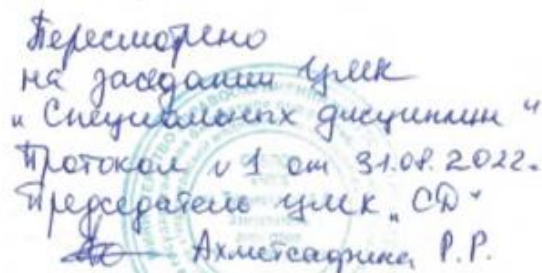 Пересмотрено
на заседании ЦМК
"Специальных дисциплин"
Протокол №1 от 31.08.2022.
Председатель ЦМК "СД"
Ахметсафина Р.Р.